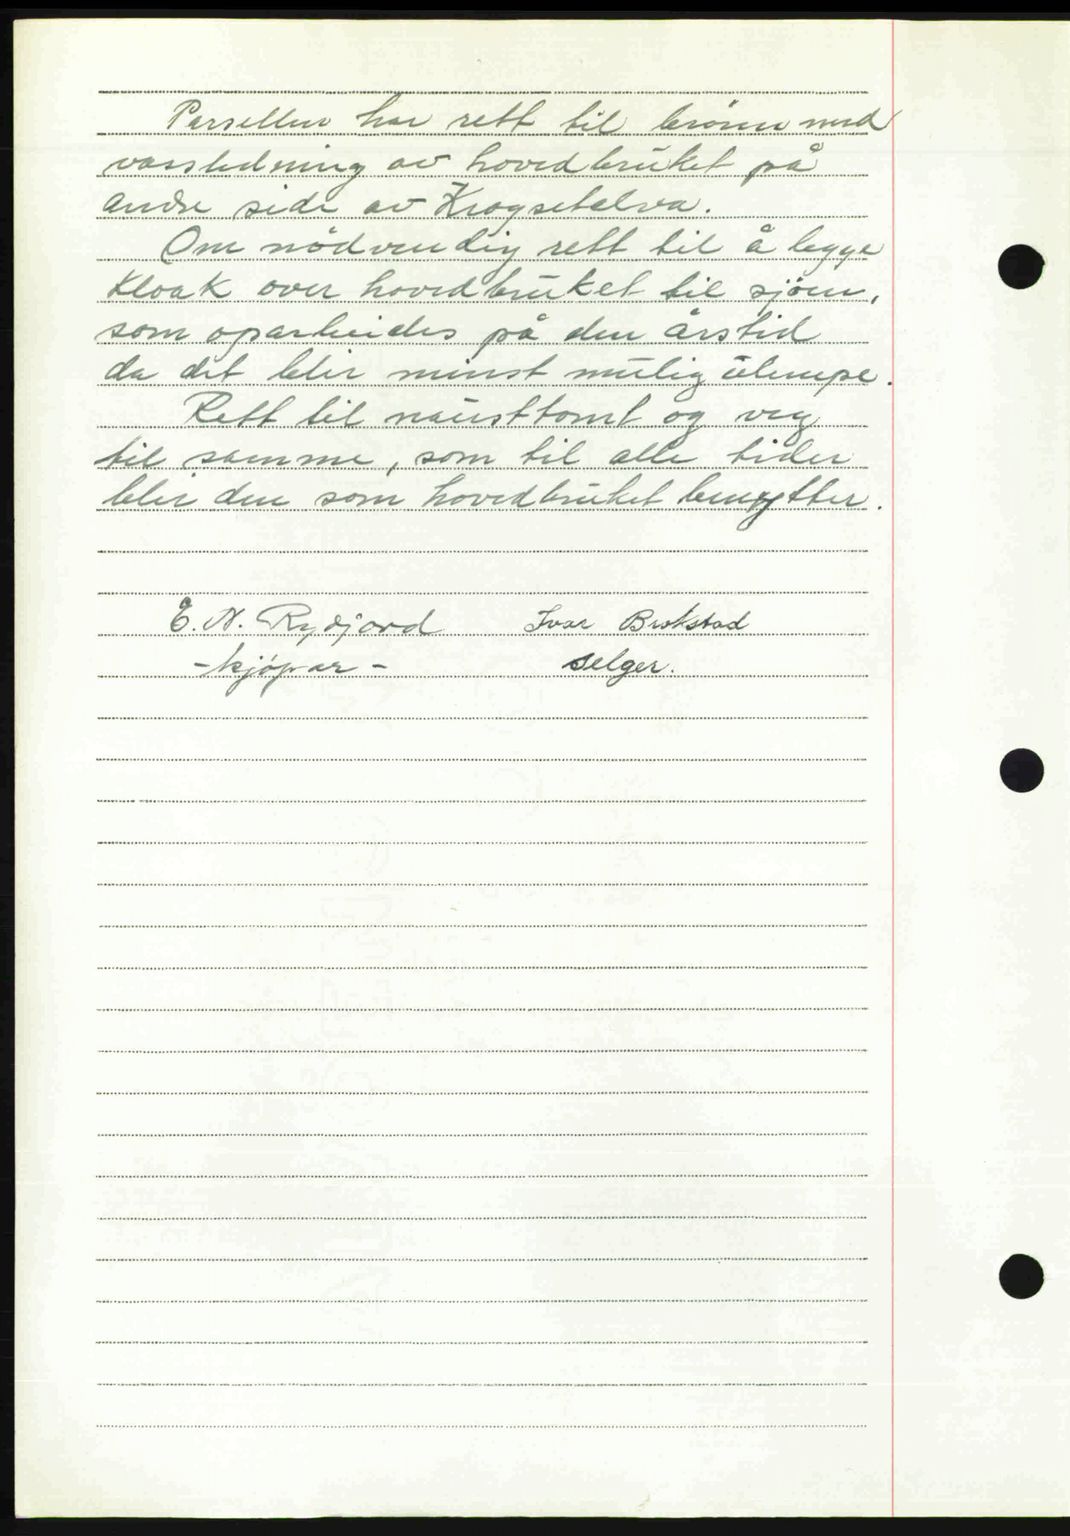 Parsellen har rett til brönn med
vassledning av hovedbruket på
andre side av Krogsetelva.
Om nödvendig rett til å legge
kloak over hovedbruket til sjöen,
som oparbeides på den årstid
da det blir minst mulig ulempe.
Rett til nausttomt og veg
til samme, som til alle tider
blir den som hovedbruket benytter.
E. N. Rydjord Ivar Brokstad
- kjöpar - selger.